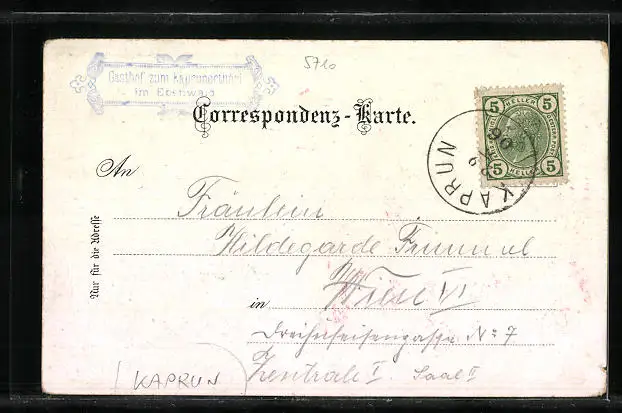 5710
Gasthof zum Kaprunerthörl
im Eschwald
Correspondenz-Karte.
5 HELLER 5
5 HELLER 5
KAPRUN
06
An
Fräulein
Hildegarde
Nur für die Adresse
in Wien VI
Dreihufeisengasse No 7
Zentrale I Saal II
(KAPRUN